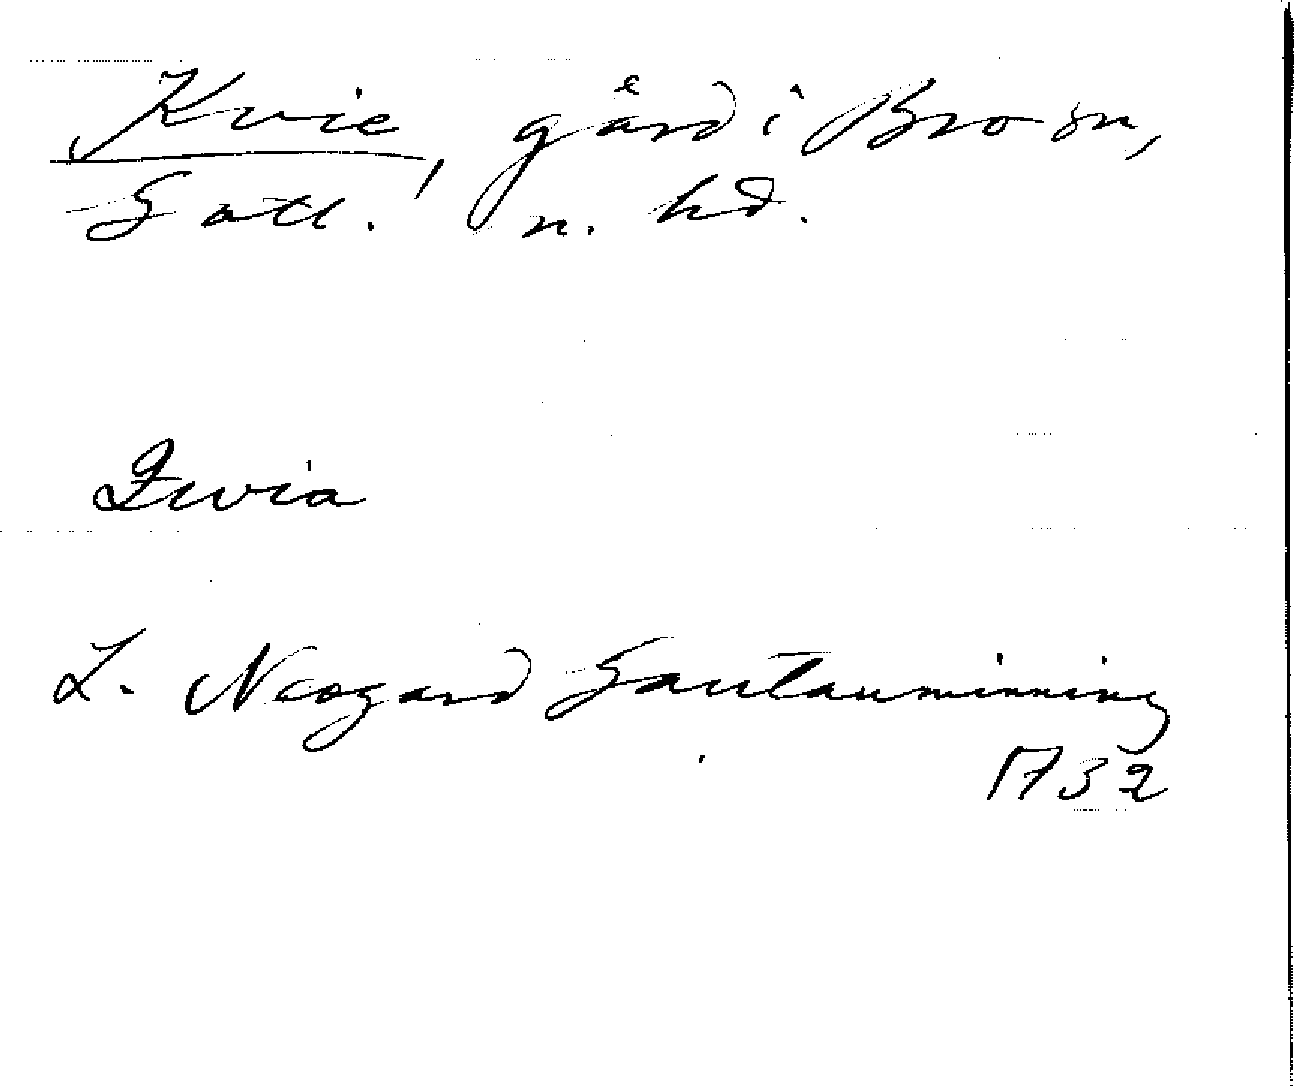 Kvie, gård i Bro sn,
Gotl. n. hd.
Qwia
L. Neogard Gautauminning
1732